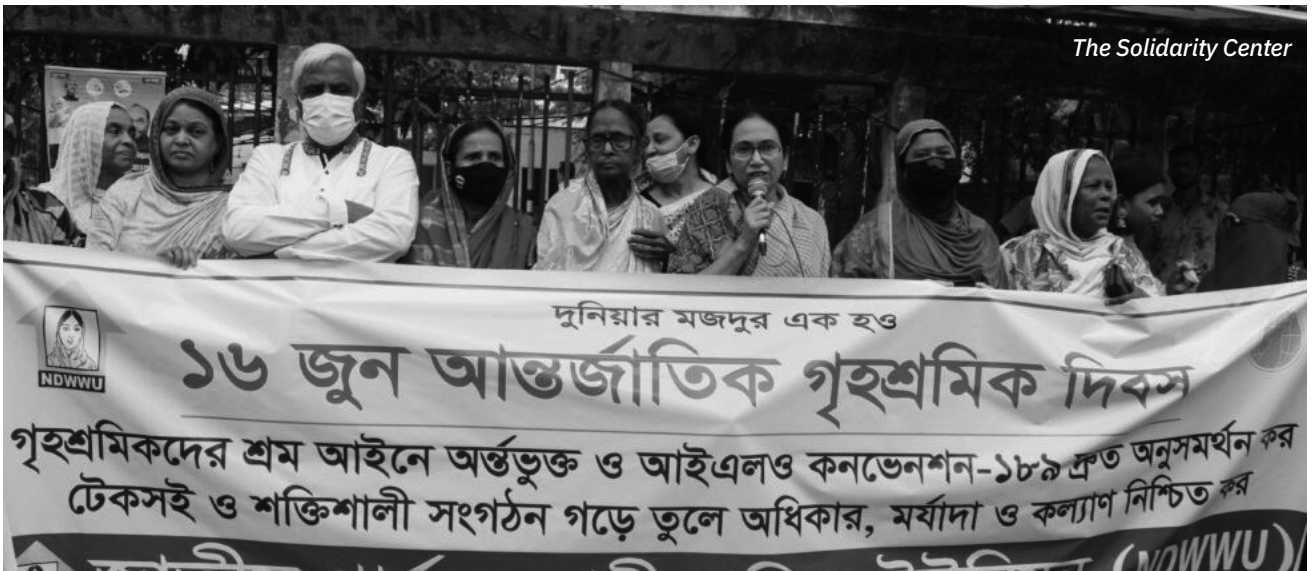 The Solidarity Center
দুনিয়ার মজদুর এক হও
১৬ জুন আন্তর্জাতিক গৃহশ্রমিক দিবস
NDWWU
গৃহশ্রমিকদের শ্রম আইনে অর্ন্তভুক্ত ও আইএলও কনভেনশন-১৮৯ দ্রুত অনুসমর্থন কর
টেকসই ও শক্তিশালী সংগঠন গড়ে তুলে অধিকার, মর্যাদা ও কল্যাণ নিশ্চিত কর
(NDWWU)